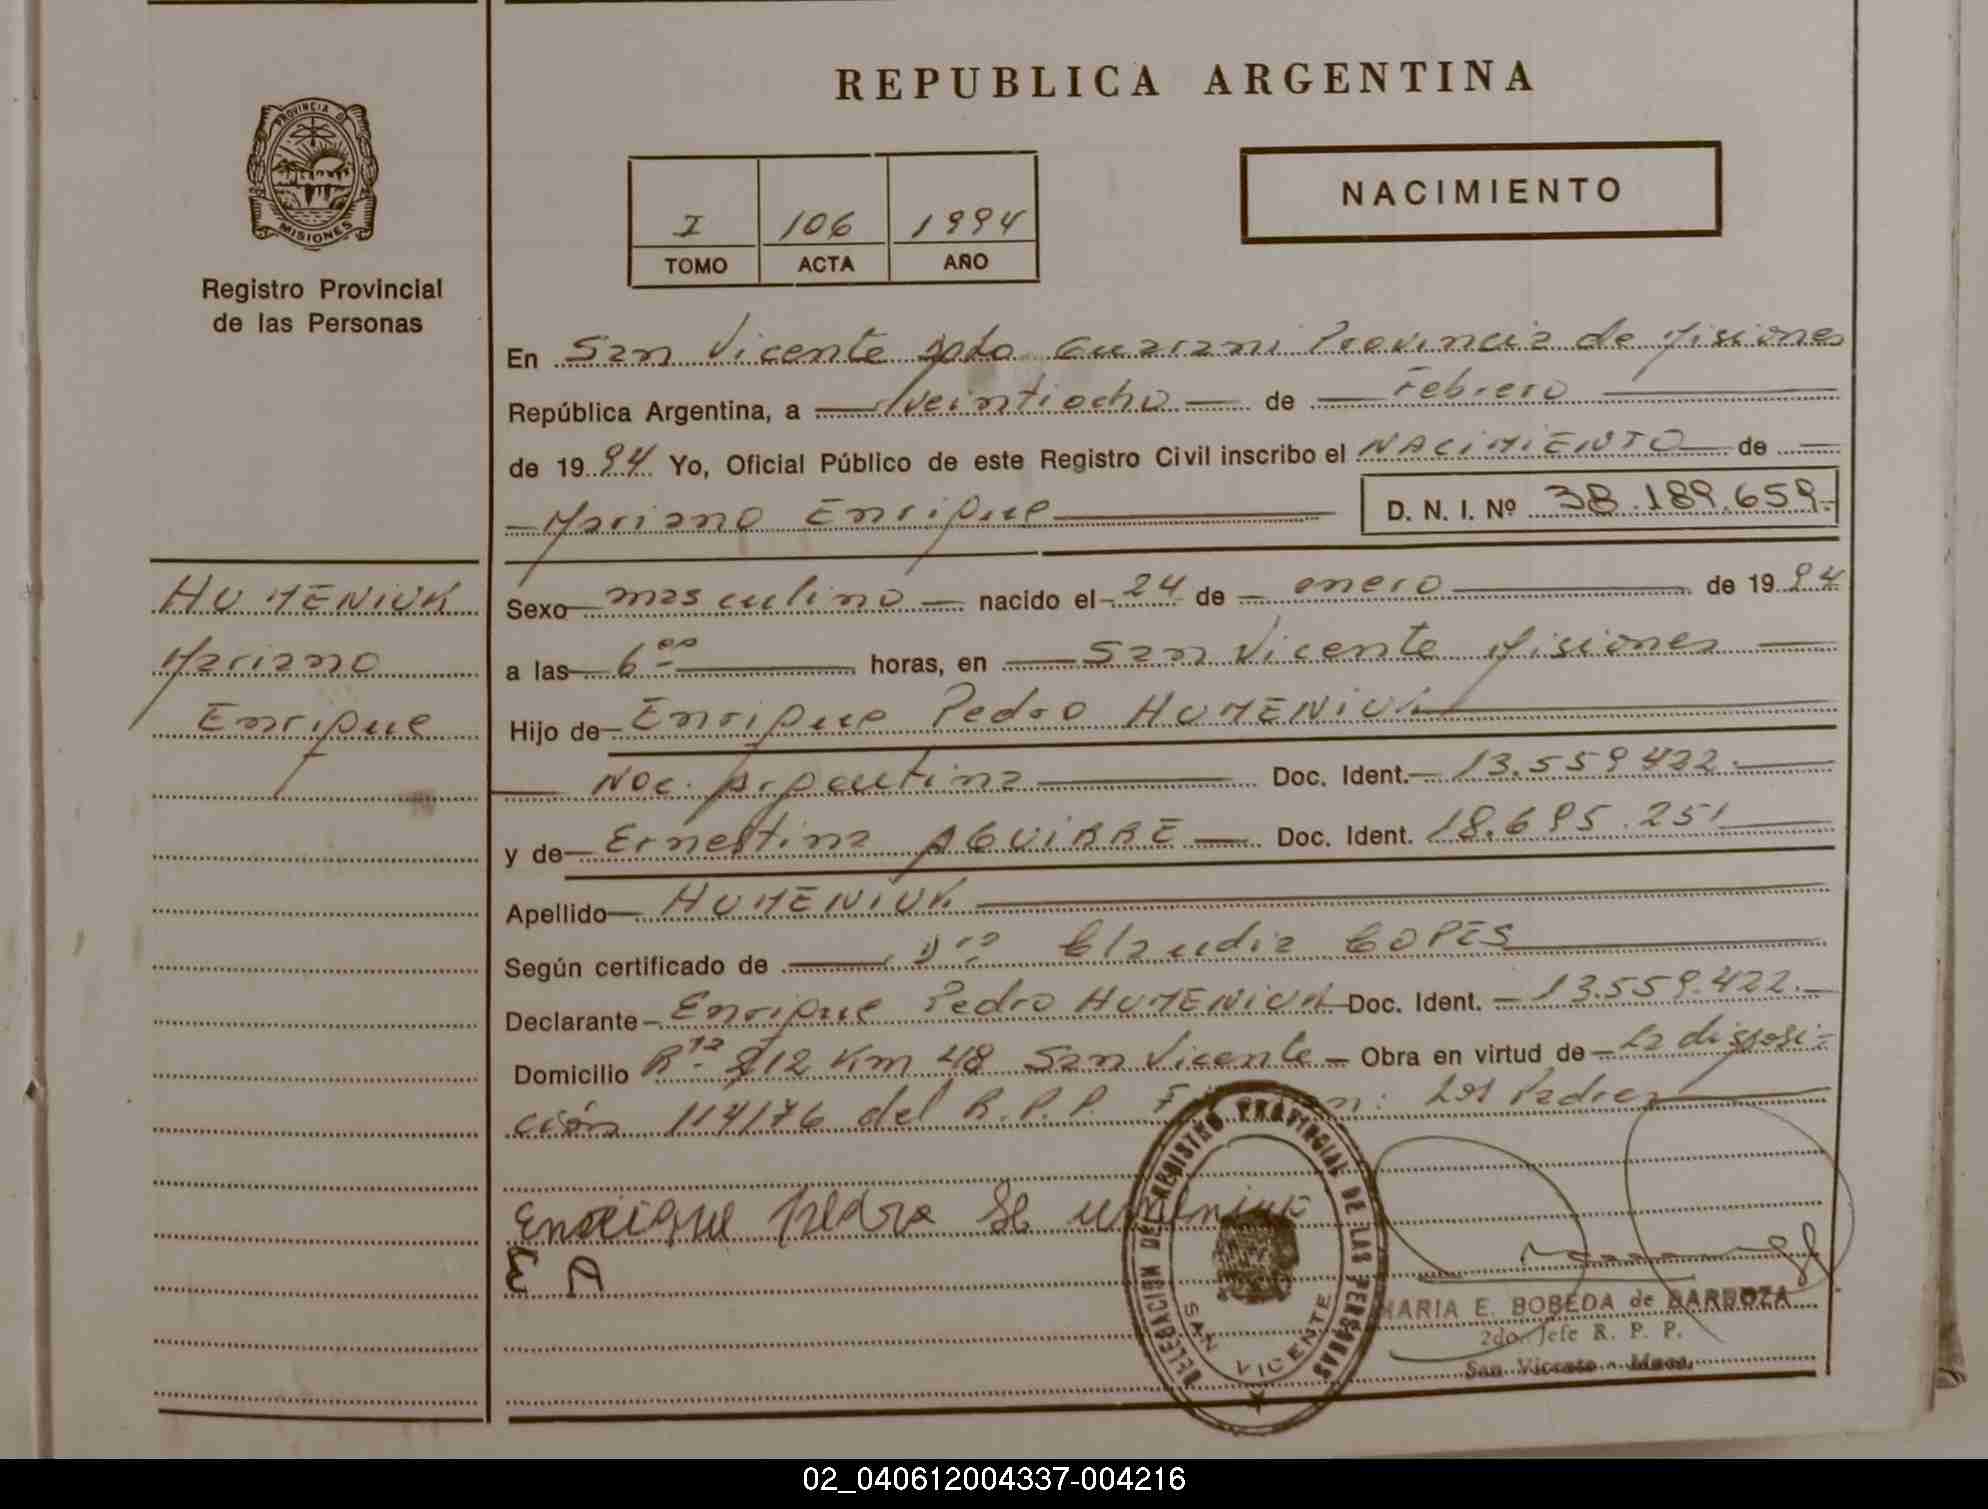 REPUBLICA ARGENTINA
PROVINCIA DE
MISIONES
Registro Provincial
de las Personas
I 106 1994
TOMO ACTA AÑO
NACIMIENTO
En San Vicente Guarani Provincia de Misiones
República Argentina, a veintiocho de Febrero
de 1994 Yo, Oficial Público de este Registro Civil inscribo el NACIMIENTO de
Mariano Enrique D. N. I. Nº 38.189.659.-
HUMENIUK
Mariano
Enrique
Sexo masculino nacido el 24 de enero de 1994
a las 6 00 horas, en San Vicente Misiones
Hijo de Enrique Pedro HUMENIUK
Nac. Argentina Doc. Ident. 13.559.422
y de Ernestina AGUIRRE Doc. Ident. 18.695.251
Apellido HUMENIUK
Según certificado de Dra Claudia COPES
Declarante Enrique Pedro HUMENIUK Doc. Ident. 13.559.422.
Domicilio Rta. 212 Km 48 San Vicente Obra en virtud de la disposi-
ción 114/76 del R.P.P. Los Padres
Enrique Pedro
E A
DELEGACION DE REGISTRO PROVINCIAL DE LAS PERSONAS
SAN VICENTE
MARIA E. BOBEDA de BARBOZA
2do. Jefe R. P. P.
San Vicente - Mnes.
02_040612004337-004216